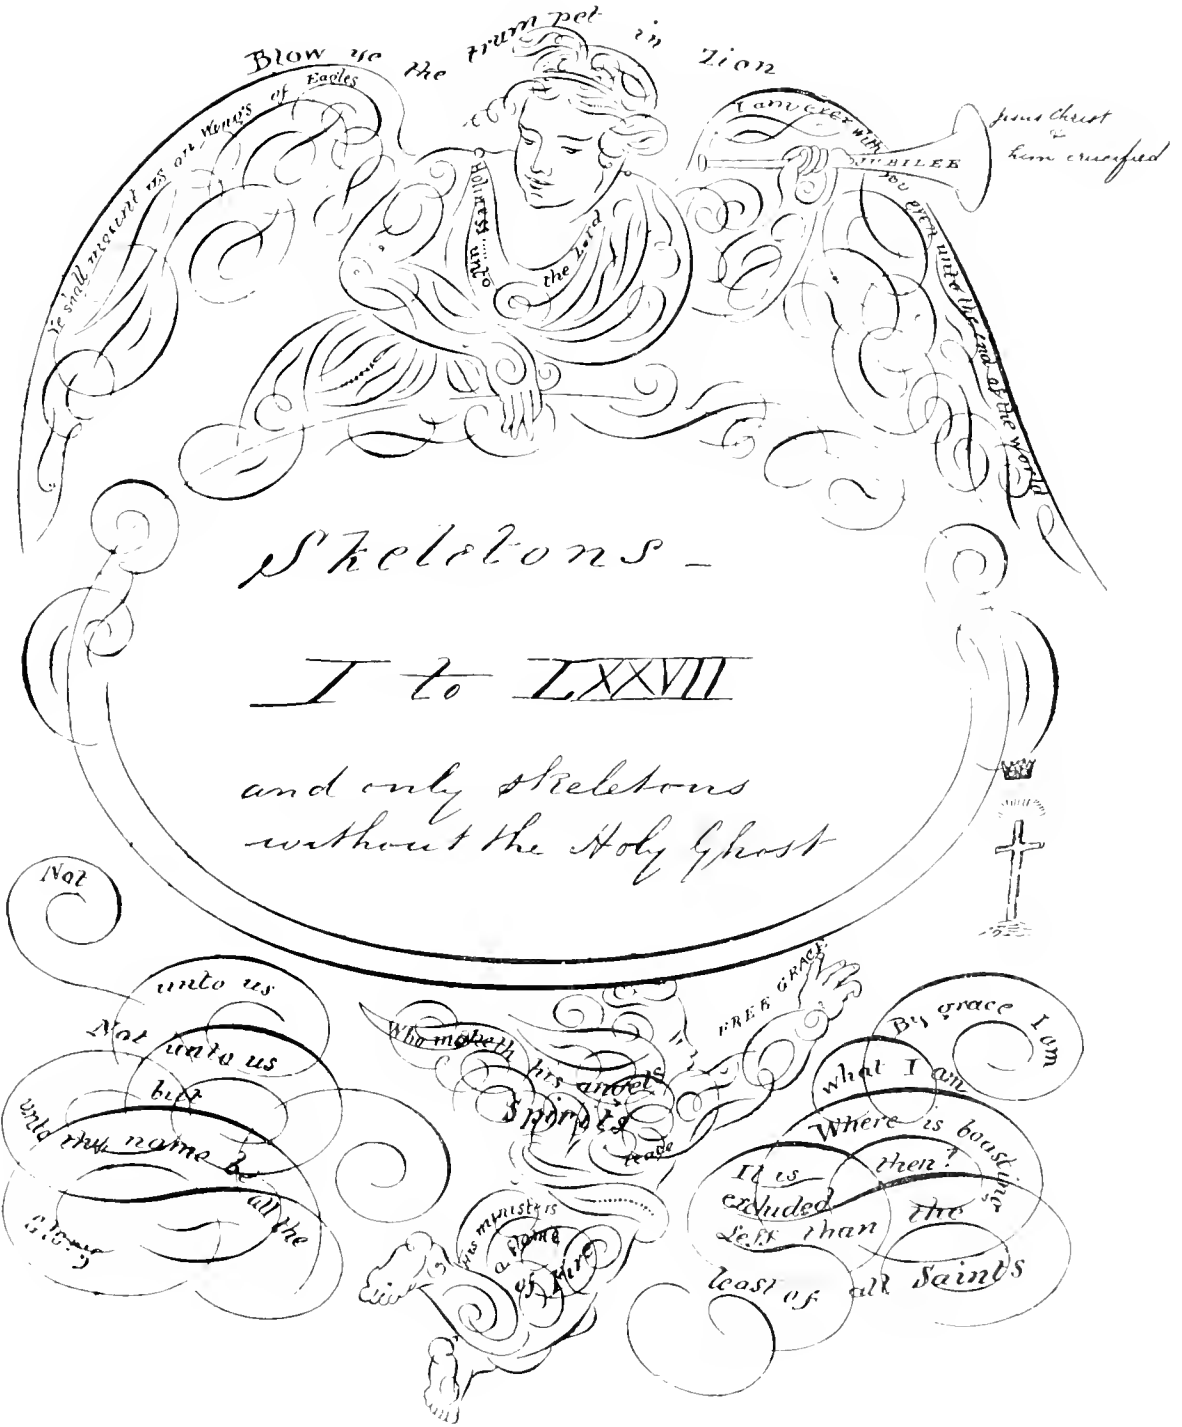 Blow ye the trumpet in Zion
Ye shall mount us on Wings of Eagles
I am ever with you even unto the end of the world
JUBILEE
Jesus Christ
&
him crucified
Holiness unto the Lord
Skeletons -
I to LXXVII
and only skeletons
without the Holy Ghost
Not
unto us
Not unto us
but
unto thy name be
all the
Glory
Who maketh his angels
Spirits
FREE GRACE
His ministers
a flame
of Fire
By grace I am
what I am
Where is boasting
then?
It is
excluded
Less than the
least of all Saints